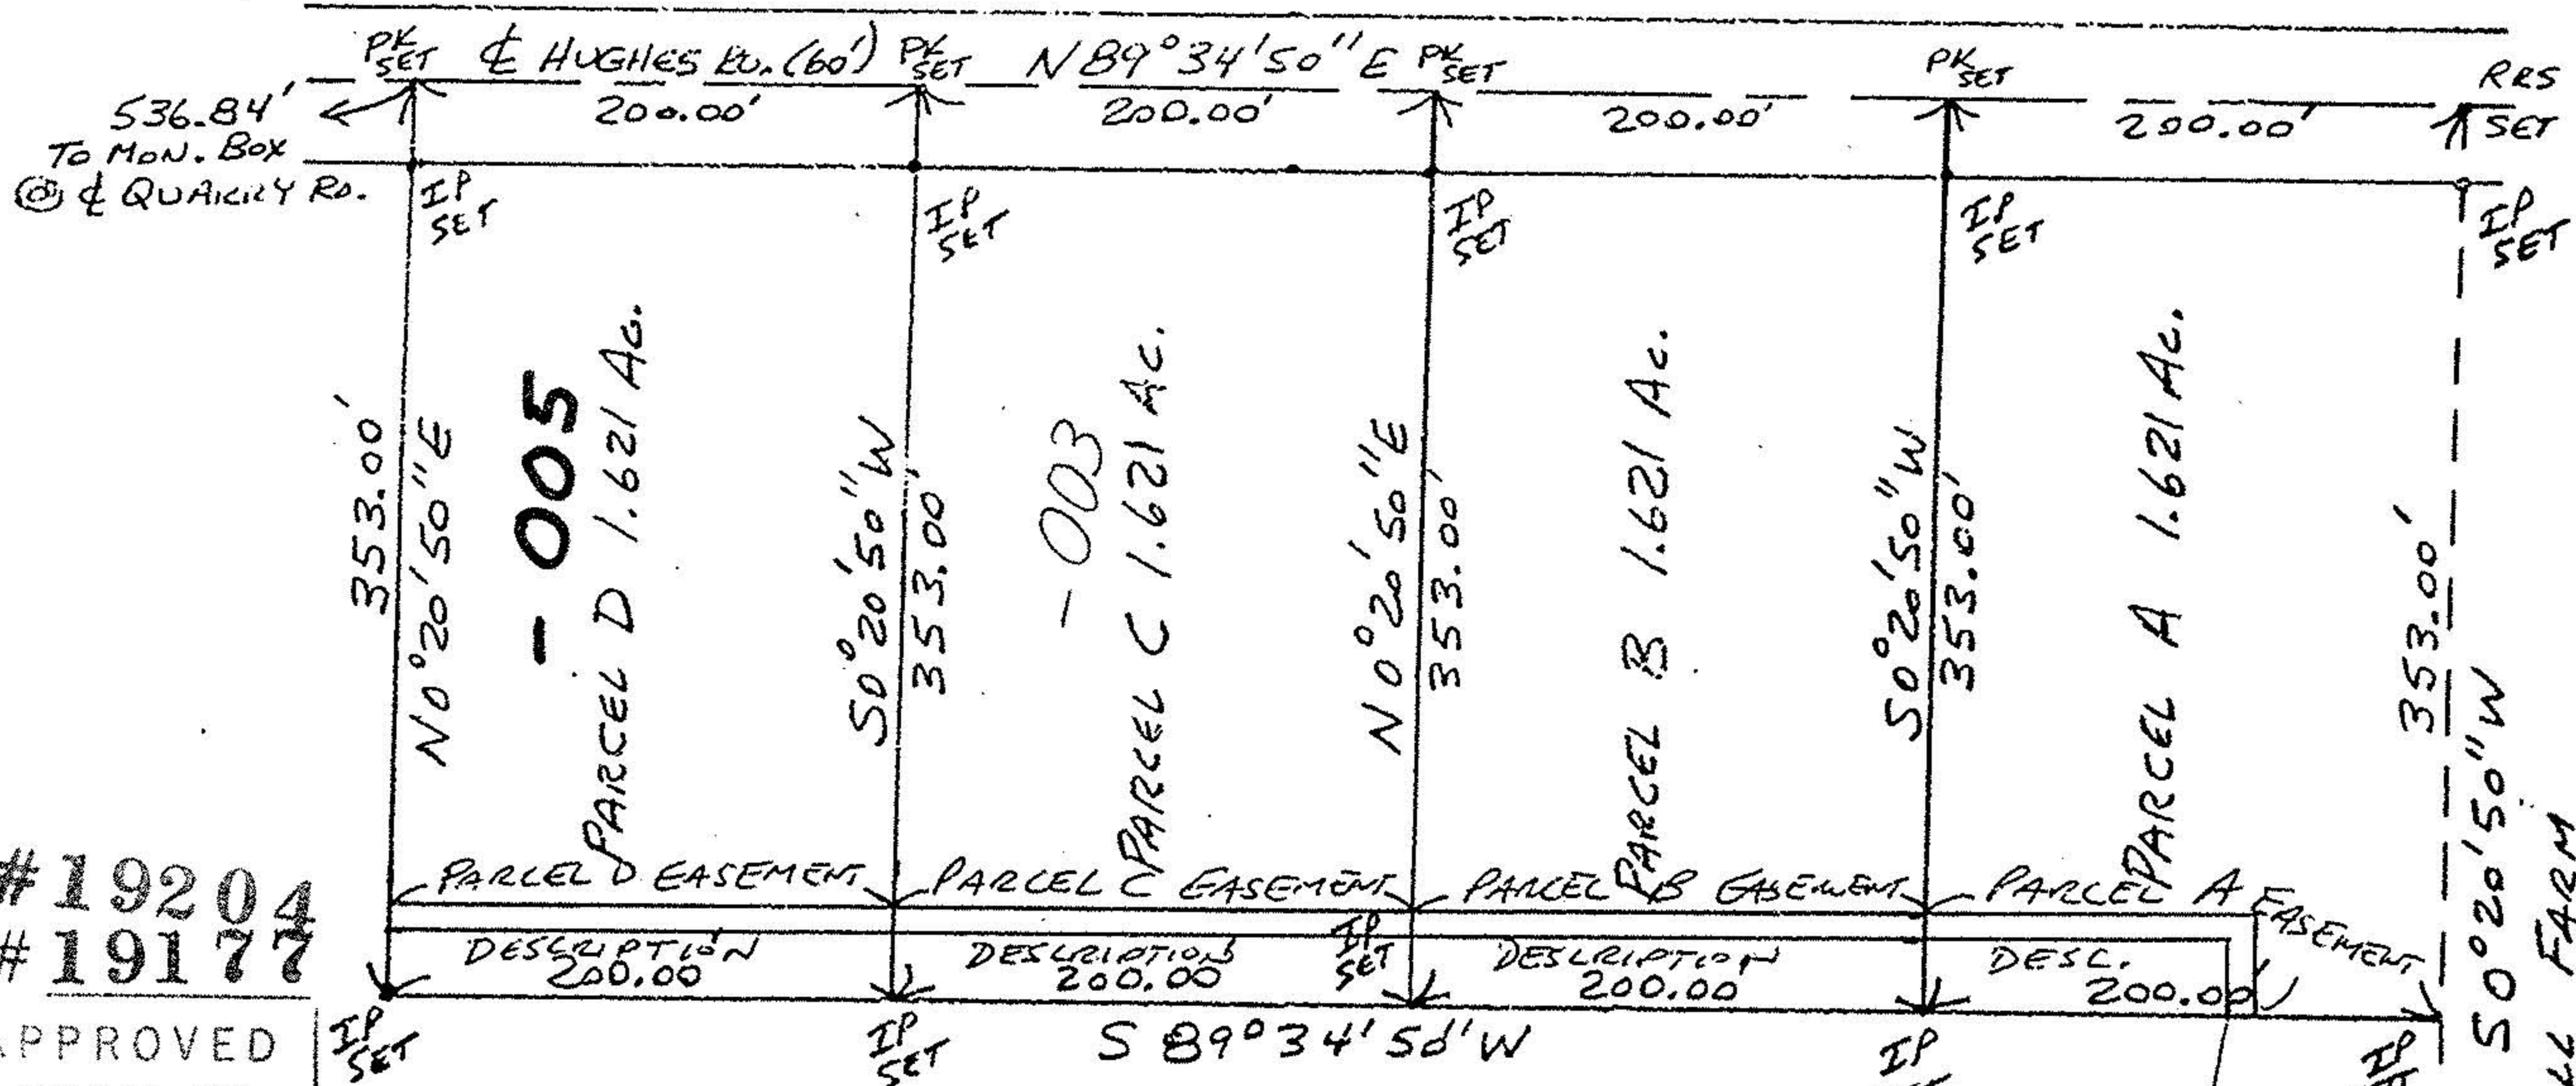 PK SET
℄ HUGHES RD. (60')
PK SET
N 89° 34' 50" E
PK SET
PK SET
RRS SET
536.84'
TO MON. BOX
@ ℄ QUARRY RD.
200.00'
200.00'
200.00'
200.00'
IP SET
IP SET
IP SET
IP SET
IP SET
353.00'
N 0° 20' 50" E
- 005
PARCEL D 1.621 Ac.
S 0° 20' 50" W
353.00'
- 003
PARCEL C 1.621 Ac.
N 0° 20' 50" E
353.00'
PARCEL B 1.621 Ac.
S 0° 20' 50" W
353.00'
PARCEL A 1.621 Ac.
353.00'
S 0° 20' 50" W
FARM
PARCEL D EASEMENT
PARCEL C EASEMENT
PARCEL B EASEMENT
PARCEL A EASEMENT
DESCRIPTION
200.00
DESCRIPTION
200.00
IP SET
DESCRIPTION
200.00
DESC.
200.00
#19204
#19177
APPROVED
IP SET
IP SET
S 89° 34' 50" W
IP
IP